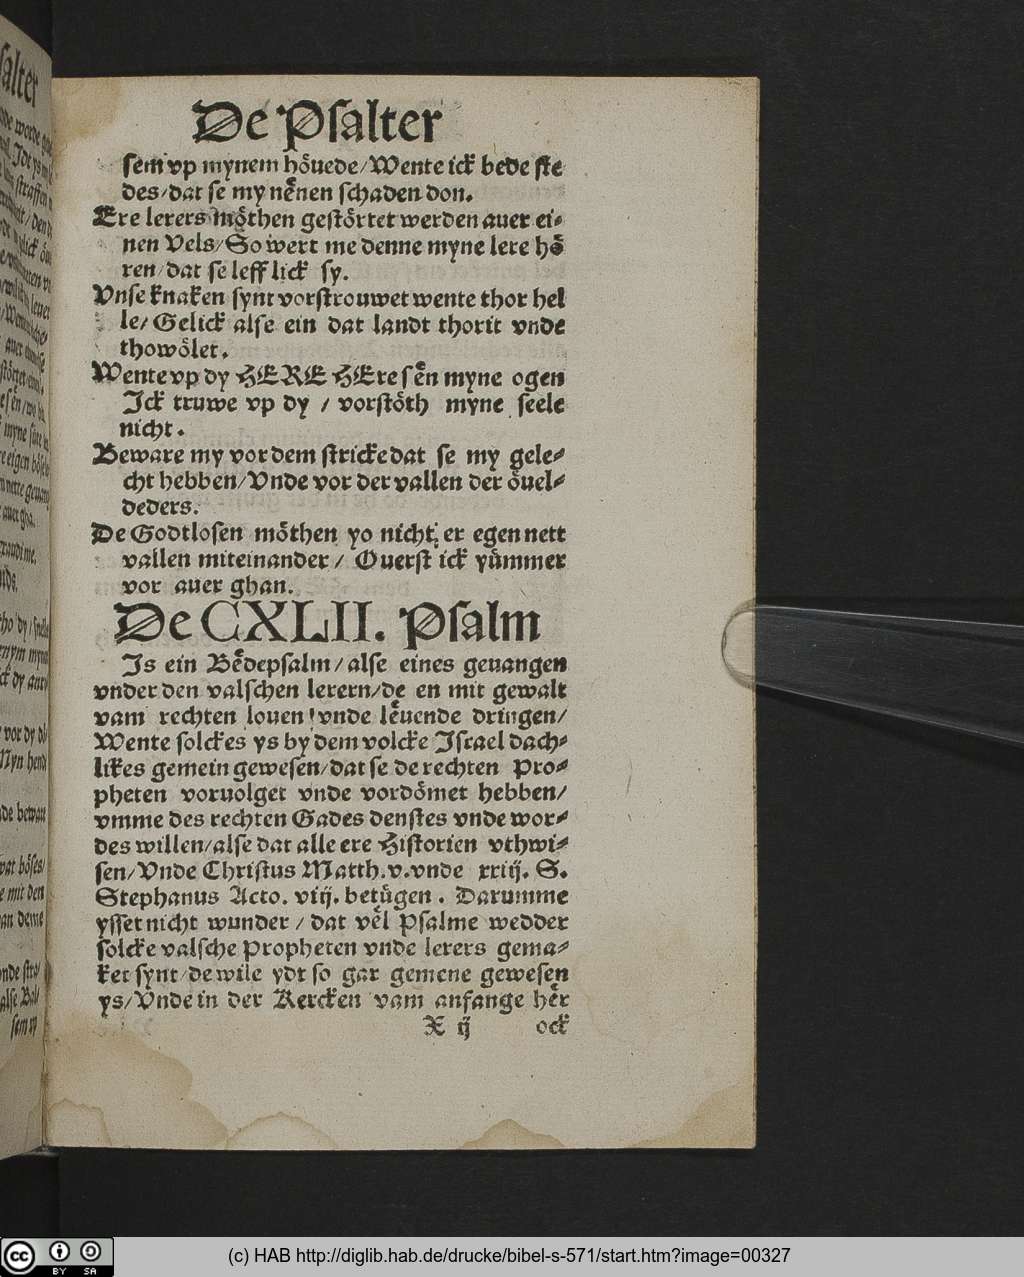 De Psalter
sem vp mynem höuede/Wente ick bede ste
des/dat se my nenen schaden don.
Ere lerers möthen gestörtet werden auer ei⸗
nen Vels/So wert me denne myne lere hö
ren/dat se leff lick sy.
Vnse knaken synt vorstrouwet wente thor hel
le/Gelick alse ein dat landt thorit vnde
thowölet.
Wente vp dy HERE HEre sen myne ogen
Ick truwe vp dy / vorstöth myne seele
nicht.
Beware my vor dem stricke dat se my gele⸗
cht hebben/Vnde vor der vallen der öuel⸗
deders.
De Godtlosen möthen yo nicht er egen nett
vallen miteinander / Ouerst ick yümmer
vor auer ghan.
De CXLII. Psalm
Is ein Bedepsalm/alse eines geuangen
vnder den valschen lerern/de en mit gewalt
vam rechten louen vnde leuende dringen/
Wente solckes ys by dem volcke Israel dach⸗
likes gemein gewesen/dat se de rechten Pro⸗
pheten voruolget vnde vordömet hebben/
vmme des rechten Gades denstes vnde wor⸗
des willen/alse dat alle ere Historien vthwi⸗
sen/Vnde Christus Matth.v.vnde xxiij. S.
Stephanus Acto. vij. betügen. Darumme
ysset nicht wunder / dat vel Psalme wedder
solcke valsche Propheten vnde lerers gema⸗
ket synt/de wile ydt so gar gemene gewesen
ys/Vnde in der Kercken vam anfange her
X ij ock
(c) HAB http://diglib.hab.de/drucke/bibel-s-571/start.htm?image=00327
cc BY SA